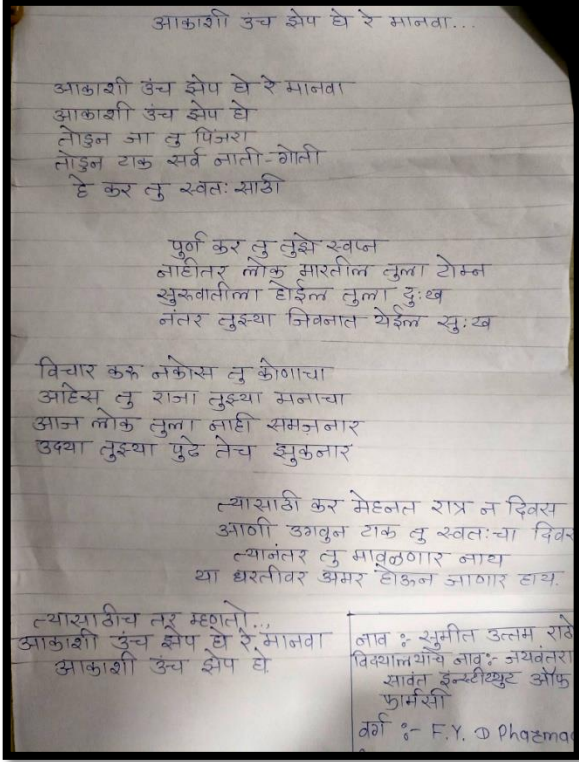 आकाशी उंच झेप घे रे मानवा...
आकाशी उंच झेप घे रे मानवा
आकाशी उंच झेप घे
तोडुन जा तु पिंजरा
तोडुन टाक सर्व नाती-गोती
हे कर तु स्वतः साठी
पुर्ण कर तु तुझे स्वप्न
नाहीतर लोक मारतील तुला टोम्न
सुरुवातीला होईल तुला दुःख
नंतर तुझ्या जिवनात येईल सुःख
विचार करू नकोस तु कोणाचा
आहेस तु राजा तुझ्या मनाचा
आज लोक तुला नाही समजनार
उदया तुझ्या पुढे तेच झुकनार
त्यासाठी कर मेहनत रात्र न दिवस
आणी उगवुन टाक तु स्वतःचा दिवस
त्यानंतर तु मावळणार नाय
या धरतीवर अमर होऊन जाणार हाय.
त्यासाठीच तर म्हणतो...
आकाशी उंच झेप घे रे मानवा
आकाशी उंच झेप घे
नाव :- सुमीत उत्तम
विदयालयाचे नाव :- जयवंतरा
सावंत इन्स्टीट्युट ऑफ
फार्मसी
वर्ग :- F.Y. D Pharma